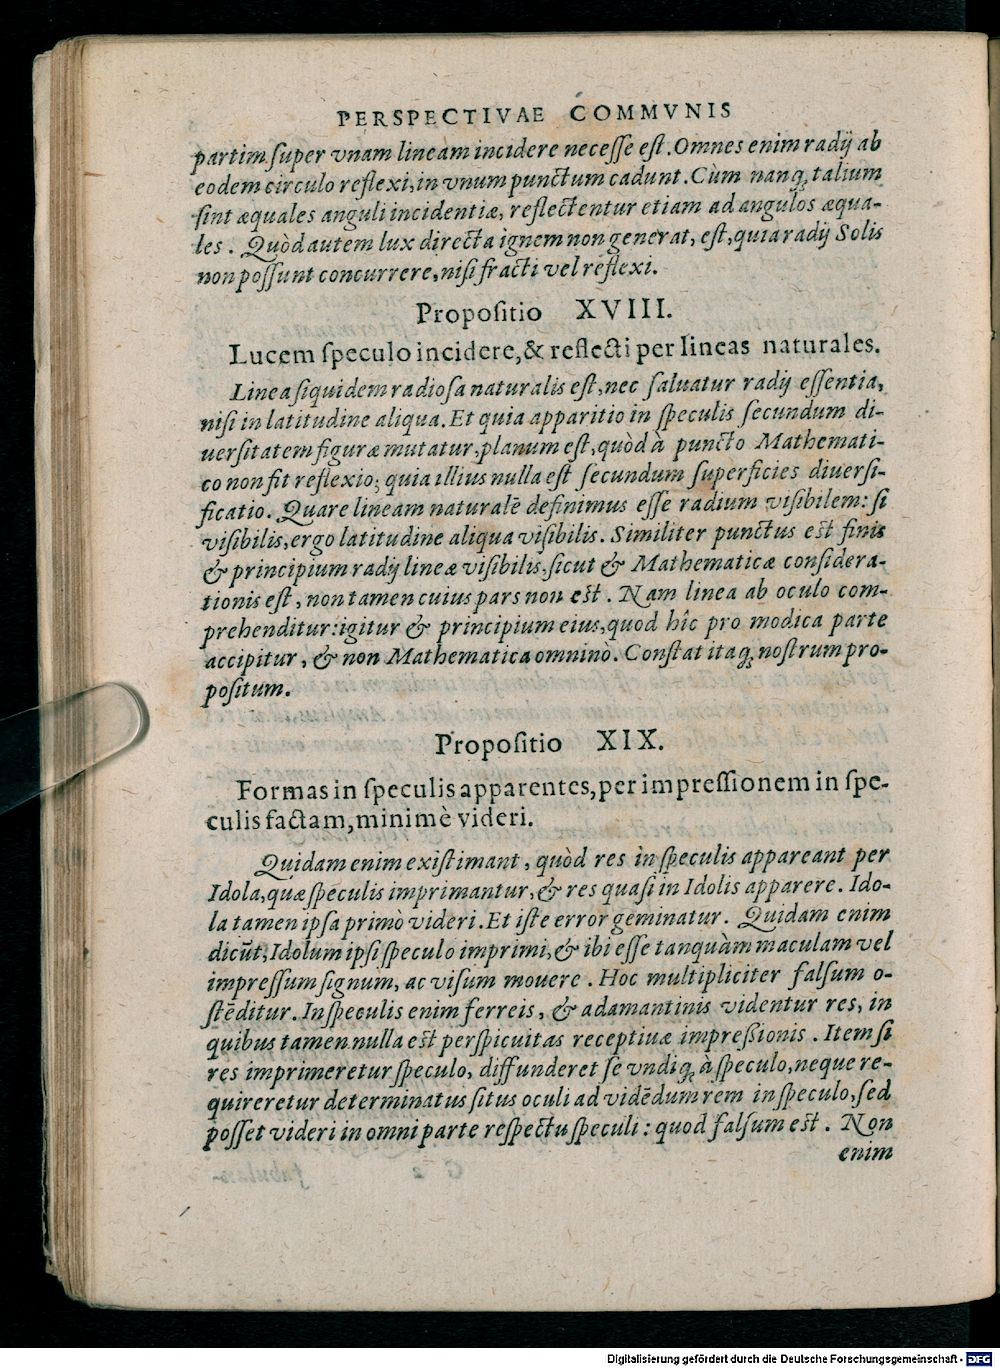 PERSPECTIVAE COMMVNIS
partim super vnam lineam incidere necesse est. Omnes enim radij ab
eodem circulo reflexi, in vnum punctum cadunt. Cùm nanq; talium
sint æquales anguli incidentiæ, reflectentur etiam ad angulos æqua-
les. Quòd autem lux directa ignem non generat, est, quia radij Solis
non possunt concurrere, nisi fracti vel reflexi.
Propositio XVIII.
Lucem speculo incidere, & reflecti per lineas naturales.
Linea siquidem radiosa naturalis est, nec saluatur radij essentia,
nisi in latitudine aliqua. Et quia apparitio in speculis secundum di-
uersitatem figuræ mutatur, planum est, quòd à puncto Mathemati-
co non fit reflexio; quia illius nulla est secundum superficies diuersi-
ficatio. Quare lineam naturalē definimus esse radium visibilem: si
visibilis, ergo latitudine aliqua visibilis. Similiter punctus est finis
& principium radij lineæ visibilis, sicut & Mathematicæ considera-
tionis est, non tamen cuius pars non est. Nam linea ab oculo com-
prehenditur: igitur & principium eius, quod hîc pro modica parte
accipitur, & non Mathematica omninò. Constat itaq; nostrum pro-
positum.
Propositio XIX.
Formas in speculis apparentes, per impressionem in spe-
culis factam, minimè videri.
Quidam enim existimant, quòd res in speculis appareant per
Idola, quæ speculis imprimantur, & res quasi in Idolis apparere. Ido-
la tamen ipsa primò videri. Et iste error geminatur. Quidam enim
dicūt, Idolum ipsi speculo imprimi, & ibi esse tanquàm maculam vel
impressum signum, ac visum mouere. Hoc multipliciter falsum o-
stēditur. In speculis enim ferreis, & adamantinis videntur res, in
quibus tamen nulla est perspicuitas receptiuæ impreßionis. Item si
res imprimeretur speculo, diffunderet se vndiq; à speculo, neque re-
quireretur determinatus situs oculi ad vidēdum rem in speculo, sed
posset videri in omni parte respectu speculi: quod falsum est. Non
enim
Digitalisierung gefördert durch die Deutsche Forschungsgemeinschaft - DFG